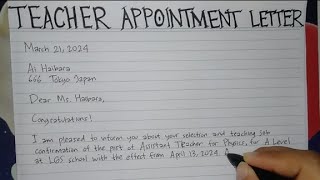 TEACHER APPOINTMENT LETTER
March 21, 2024
Ai Haibara
666 Tokyo Japan
Dear Ms. Haibara,
Congratulations!
I am pleased to inform you about your selection and teaching job
confirmation of the post of Assistant Teacher for Physics, for A Level
at LGS school with the effect from April 13, 2024